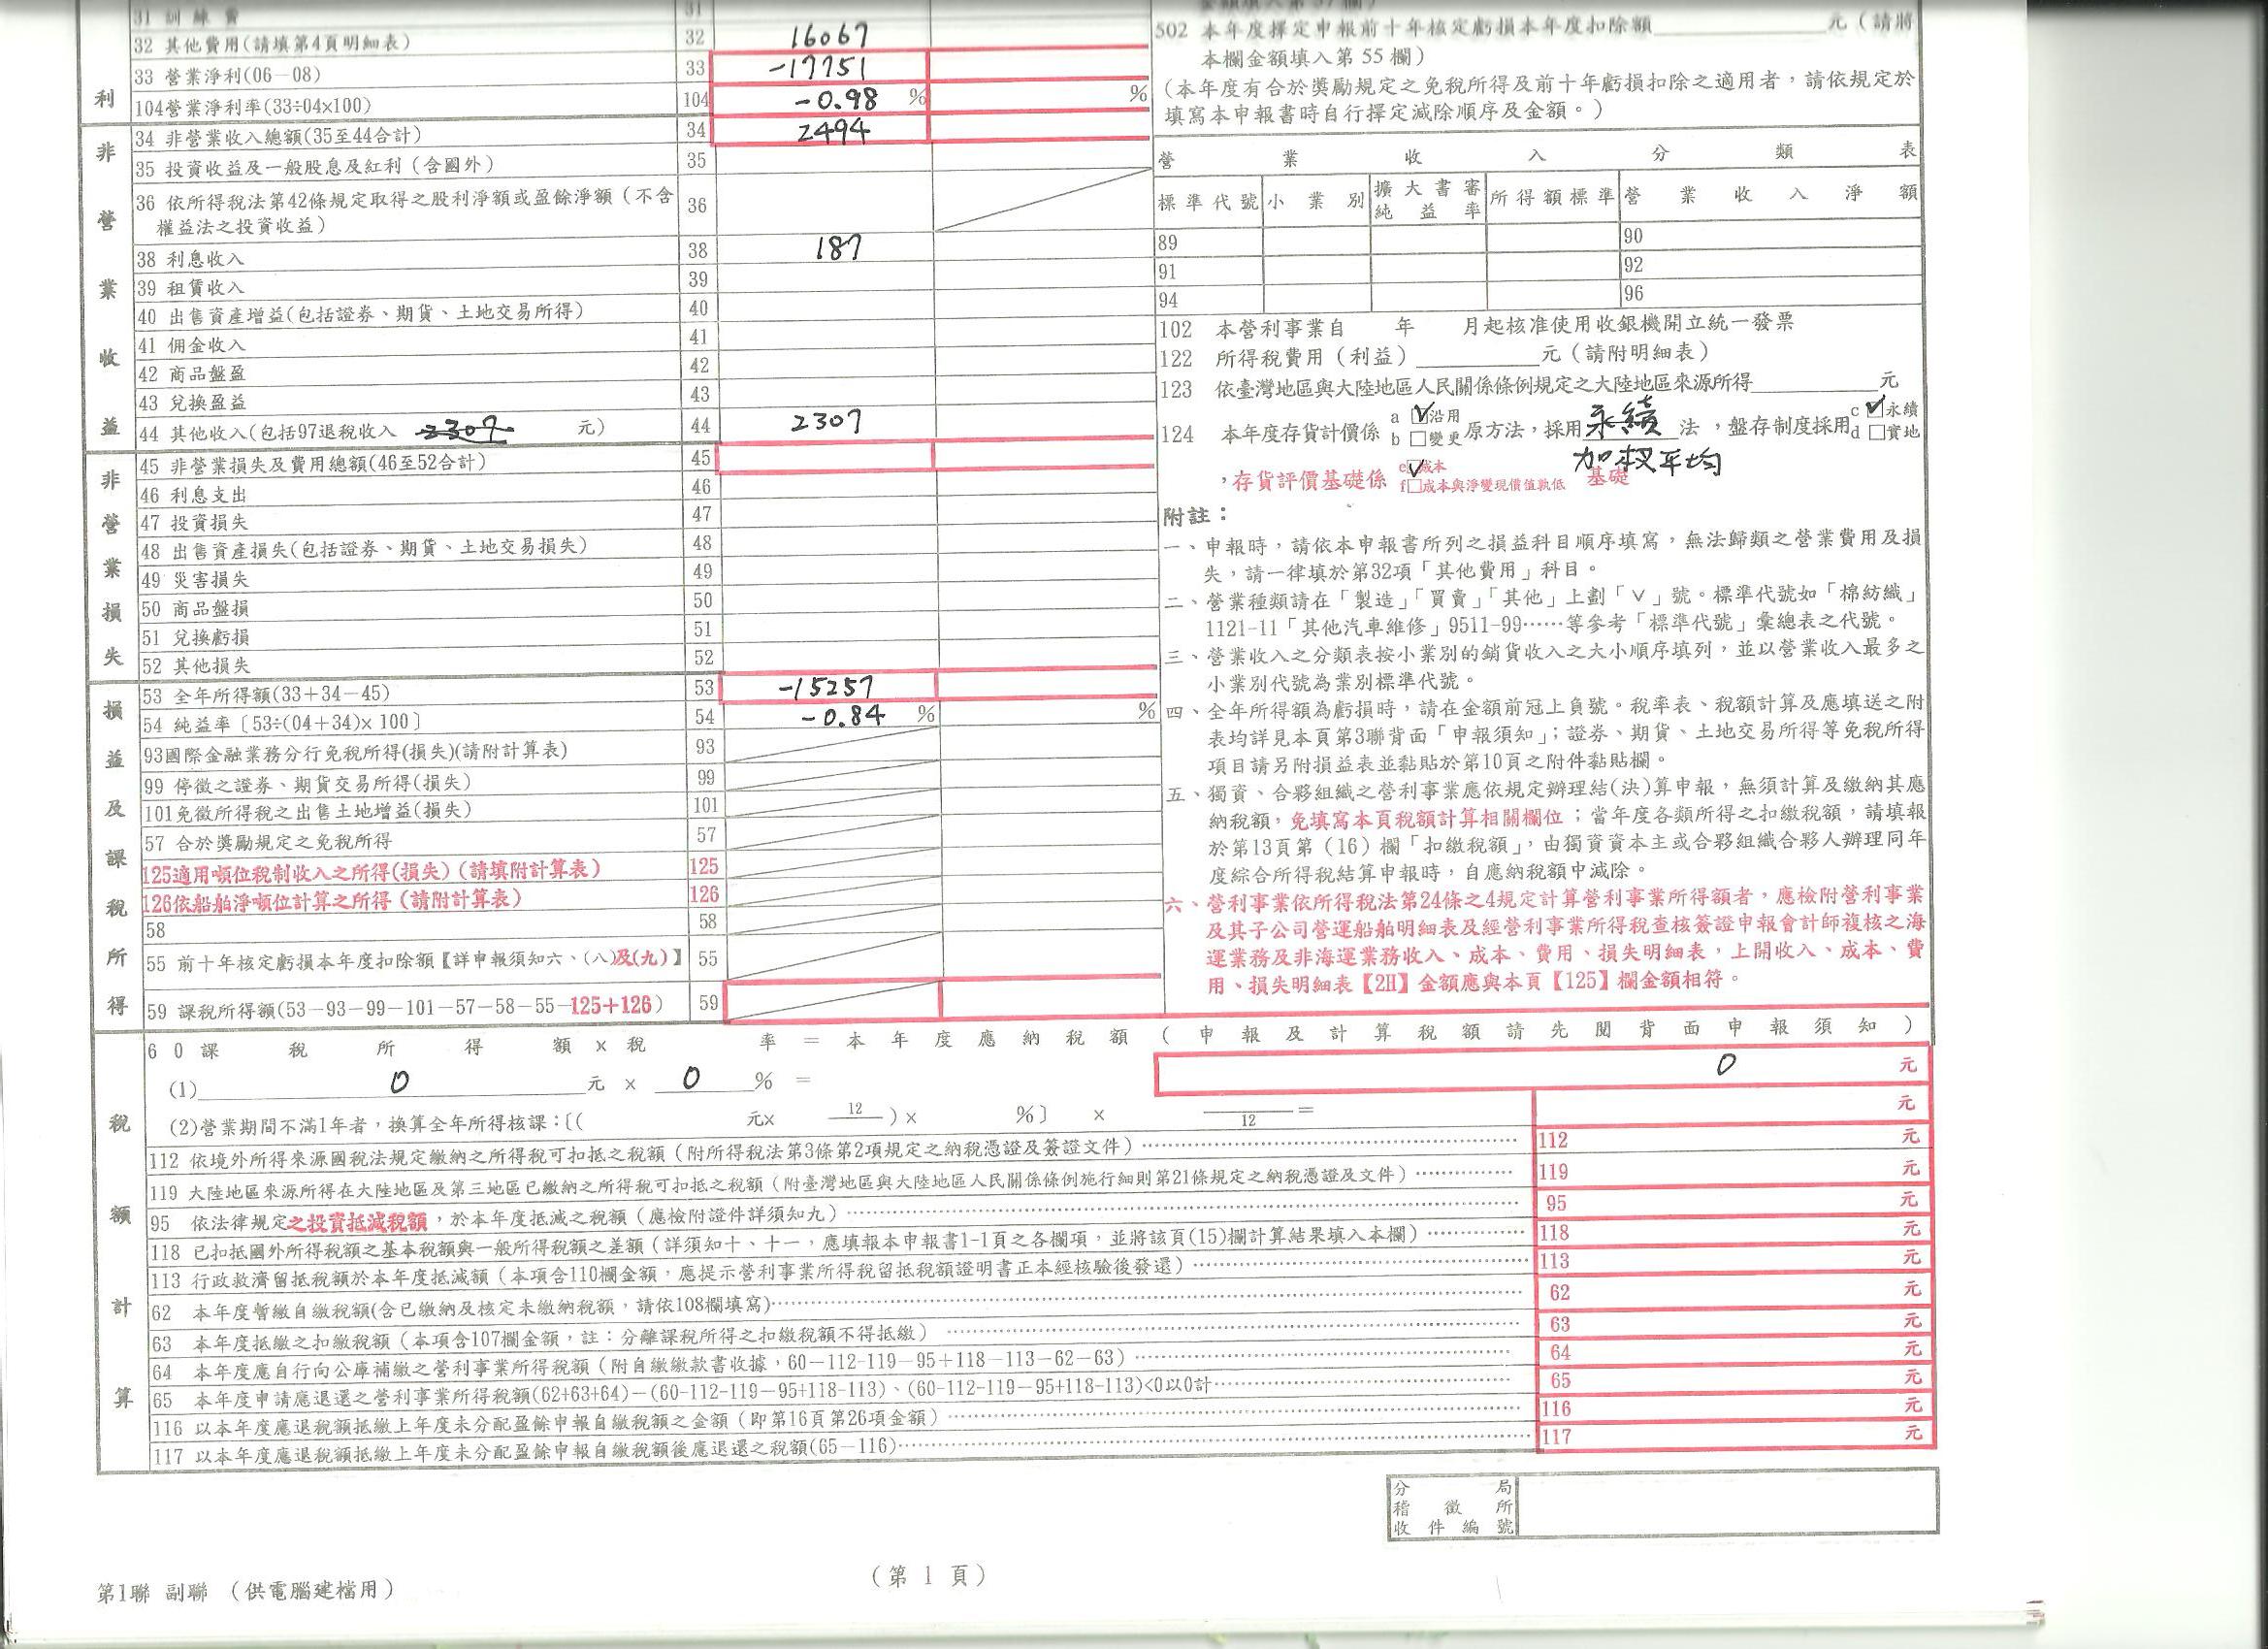 31 訓練費 31
32 其他費用(請填第4頁明細表) 32 16067
33 營業淨利(06－08) 33 -17751
104營業淨利率(33÷04×100) 104 -0.98 % %
利
34 非營業收入總額(35至44合計) 34 2494
35 投資收益及一般股息及紅利（含國外） 35
36 依所得稅法第42條規定取得之股利淨額或盈餘淨額（不含
權益法之投資收益） 36
38 利息收入 38 187
39 租賃收入 39
40 出售資產增益(包括證券、期貨、土地交易所得) 40
41 佣金收入 41
42 商品盤盈 42
43 兌換盈益 43
44 其他收入(包括97退稅收入 2307 元) 44 2307
非營業收益
45 非營業損失及費用總額(46至52合計) 45
46 利息支出 46
47 投資損失 47
48 出售資產損失(包括證券、期貨、土地交易損失) 48
49 災害損失 49
50 商品盤損 50
51 兌換虧損 51
52 其他損失 52
非營業損失
53 全年所得額(33＋34－45) 53 -15257
54 純益率〔53÷(04＋34)×100〕 54 -0.84 % %
93國際金融業務分行免稅所得(損失)(請附計算表) 93
99 停徵之證券、期貨交易所得(損失) 99
101免徵所得稅之出售土地增益(損失) 101
57 合於獎勵規定之免稅所得 57
125適用噸位稅制收入之所得(損失)(請填附計算表) 125
126依船舶淨噸位計算之所得(請附計算表) 126
58 58
55 前十年核定虧損本年度扣除額【詳申報須知六、(八)及(九)】 55
59 課稅所得額(53－93－99－101－57－58－55－125＋126) 59
損益及課稅所得
502 本年度擇定申報前十年核定虧損本年度扣除額 元（請將
本欄金額填入第55欄）
（本年度有合於獎勵規定之免稅所得及前十年虧損扣除之適用者，請依規定於
填寫本申報書時自行擇定減除順序及金額。）
營業收入分類表
標準代號 小業別 擴大書審純益率 所得額標準 營業收入淨額
89 90
91 92
94 96
102 本營利事業自 年 月起核准使用收銀機開立統一發票
122 所得稅費用（利益） 元（請附明細表）
123 依臺灣地區與大陸地區人民關係條例規定之大陸地區來源所得 元
124 本年度存貨計價係 a ☑沿用 b □變更 原方法，採用 永續 法，盤存制度採用 c ☑永續 d □實地
加权平均
，存貨評價基礎係 e☑成本 f□成本與淨變現價值孰低 基礎
附註：
一、申報時，請依本申報書所列之損益科目順序填寫，無法歸類之營業費用及損
失，請一律填於第32項「其他費用」科目。
二、營業種類請在「製造」「買賣」「其他」上劃「∨」號。標準代號如「棉紡織」
1121-11「其他汽車維修」9511-99……等參考「標準代號」彙總表之代號。
三、營業收入之分類表按小業別的銷貨收入之大小順序填列，並以營業收入最多之
小業別代號為業別標準代號。
四、全年所得額為虧損時，請在金額前冠上負號。稅率表、稅額計算及應填送之附
表均詳見本頁第3聯背面「申報須知」；證券、期貨、土地交易所得等免稅所得
項目請另附損益表並黏貼於第10頁之附件黏貼欄。
五、獨資、合夥組織之營利事業應依規定辦理結(決)算申報，無須計算及繳納其應
納稅額，免填寫本頁稅額計算相關欄位；當年度各類所得之扣繳稅額，請填報
於第13頁第（16）欄「扣繳稅額」，由獨資資本主或合夥組織合夥人辦理同年
度綜合所得稅結算申報時，自應納稅額中減除。
六、營利事業依所得稅法第24條之4規定計算營利事業所得額者，應檢附營利事業
及其子公司營運船舶明細表及經營利事業所得稅查核簽證申報會計師複核之海
運業務及非海運業務收入、成本、費用、損失明細表，上開收入、成本、費
用、損失明細表【2H】金額應與本頁【125】欄金額相符。
60課稅所得額×稅率＝本年度應納稅額（申報及計算稅額請先閱背面申報須知）
(1) 0 元 × 0 % ＝ 0 元
(2)營業期間不滿1年者，換算全年所得核課：〔( 元× 12 )× %〕 × 12 ＝ 元
112 依境外所得來源國稅法規定繳納之所得稅可扣抵之稅額（附所得稅法第3條第2項規定之納稅憑證及簽證文件）…… 112 元
119 大陸地區來源所得在大陸地區及第三地區已繳納之所得稅可扣抵之稅額（附臺灣地區與大陸地區人民關係條例施行細則第21條規定之納稅憑證及文件）…… 119 元
95 依法律規定之投資抵減稅額，於本年度抵減之稅額（應檢附證件詳須知九）…… 95 元
118 已扣抵國外所得稅額之基本稅額與一般所得稅額之差額（詳須知十、十一，應填報本申報書1-1頁之各欄項，並將該頁(15)欄計算結果填入本欄）…… 118 元
113 行政救濟留抵稅額於本年度抵減額（本項含110欄金額，應提示營利事業所得稅留抵稅額證明書正本經核驗後發還）…… 113 元
62 本年度暫繳自繳稅額(含已繳納及核定未繳納稅額，請依108欄填寫)…… 62 元
63 本年度抵繳之扣繳稅額（本項含107欄金額，註：分離課稅所得之扣繳稅額不得抵繳）…… 63 元
64 本年度應自行向公庫補繳之營利事業所得稅額（附自繳繳款書收據，60－112-119－95＋118－113－62－63）…… 64 元
65 本年度申請應退還之營利事業所得稅額(62+63+64)－(60-112-119－95+118-113)、(60-112-119－95+118-113)<0以0計…… 65 元
116 以本年度應退稅額抵繳上年度未分配盈餘申報自繳稅額之金額（即第16頁第26項金額）…… 116 元
117 以本年度應退稅額抵繳上年度未分配盈餘申報自繳稅額後應退還之稅額(65－116)…… 117 元
稅額計算
分局
稽徵所
收件編號
（第 1 頁）
第1聯 副聯 （供電腦建檔用）